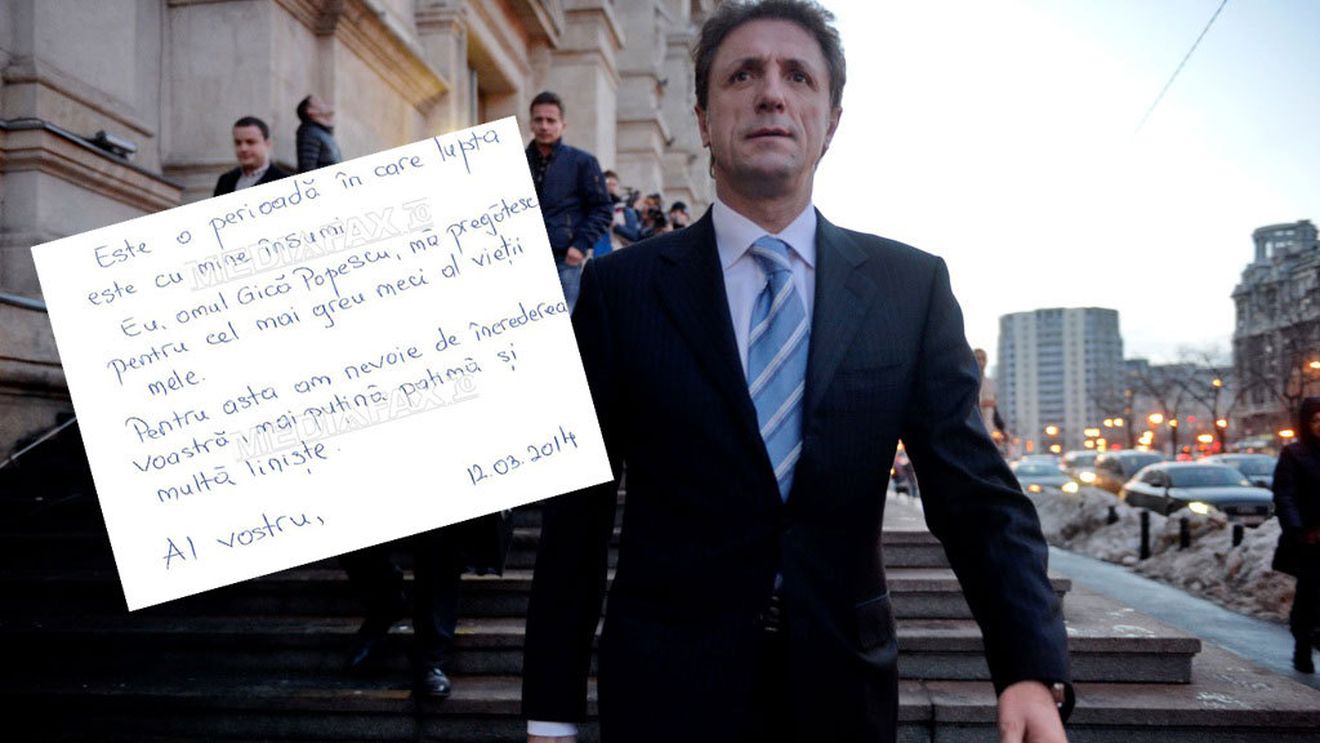 Este o perioadă în care lupta
este cu mine însumi.
Eu, omul Gică Popescu, mă pregătesc
pentru cel mai greu meci al vieții
mele.
Pentru asta am nevoie de încrederea
voastră, mai puțină patimă și
multă liniște.
12.03.2014
Al vostru,
MEDIAFAX.ro
MEDIAFAX.ro